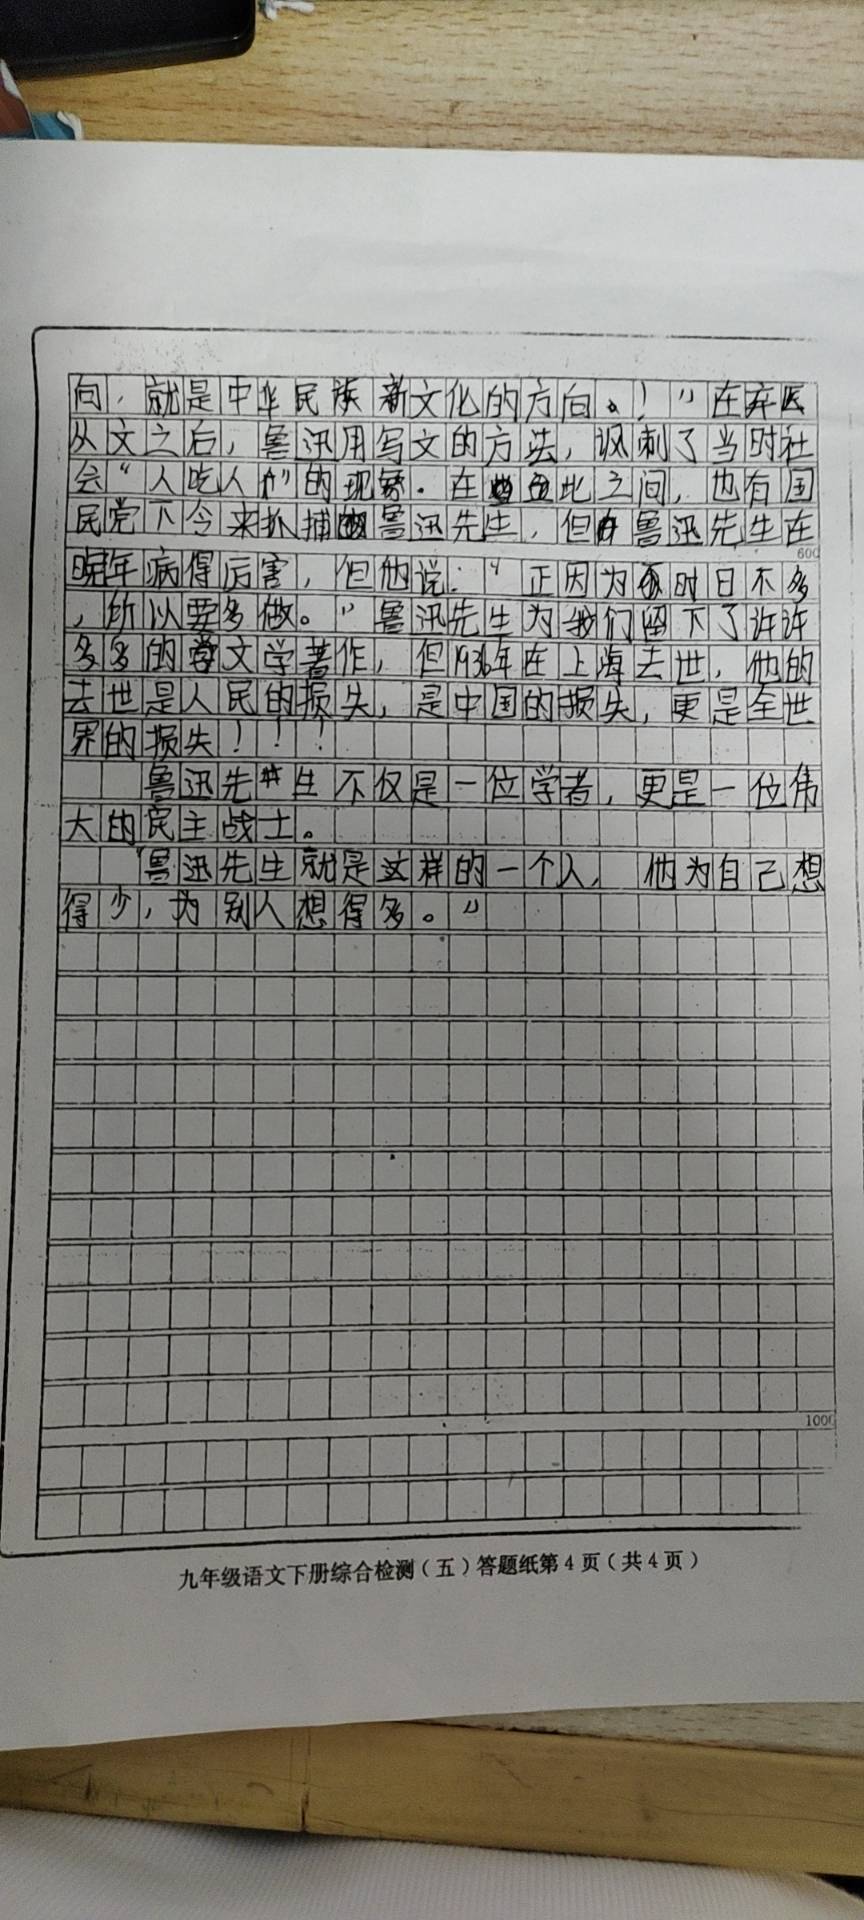 向，就是中华民族新文化的方向。！”在弃医
从文之后，鲁迅用写文的方法，讽刺了当时社
会“人吃人”的现象。在此之间，也有国
民党下令来抓捕鲁迅先生，但鲁迅先生在
600
晚年病得厉害，但他说：“正因为时日不多
，所以要多做。”鲁迅先生为我们留下了许许
多多的文学著作，但1936年在上海去世，他的
去世是人民的损失，是中国的损失，更是全世
界的损失！！！
鲁迅先生不仅是一位学者，更是一位伟
大的民主战士。
“鲁迅先生就是这样的一个人，他为自己想
得少，为别人想得多。”
1000
九年级语文下册综合检测（五）答题纸第4页（共4页）